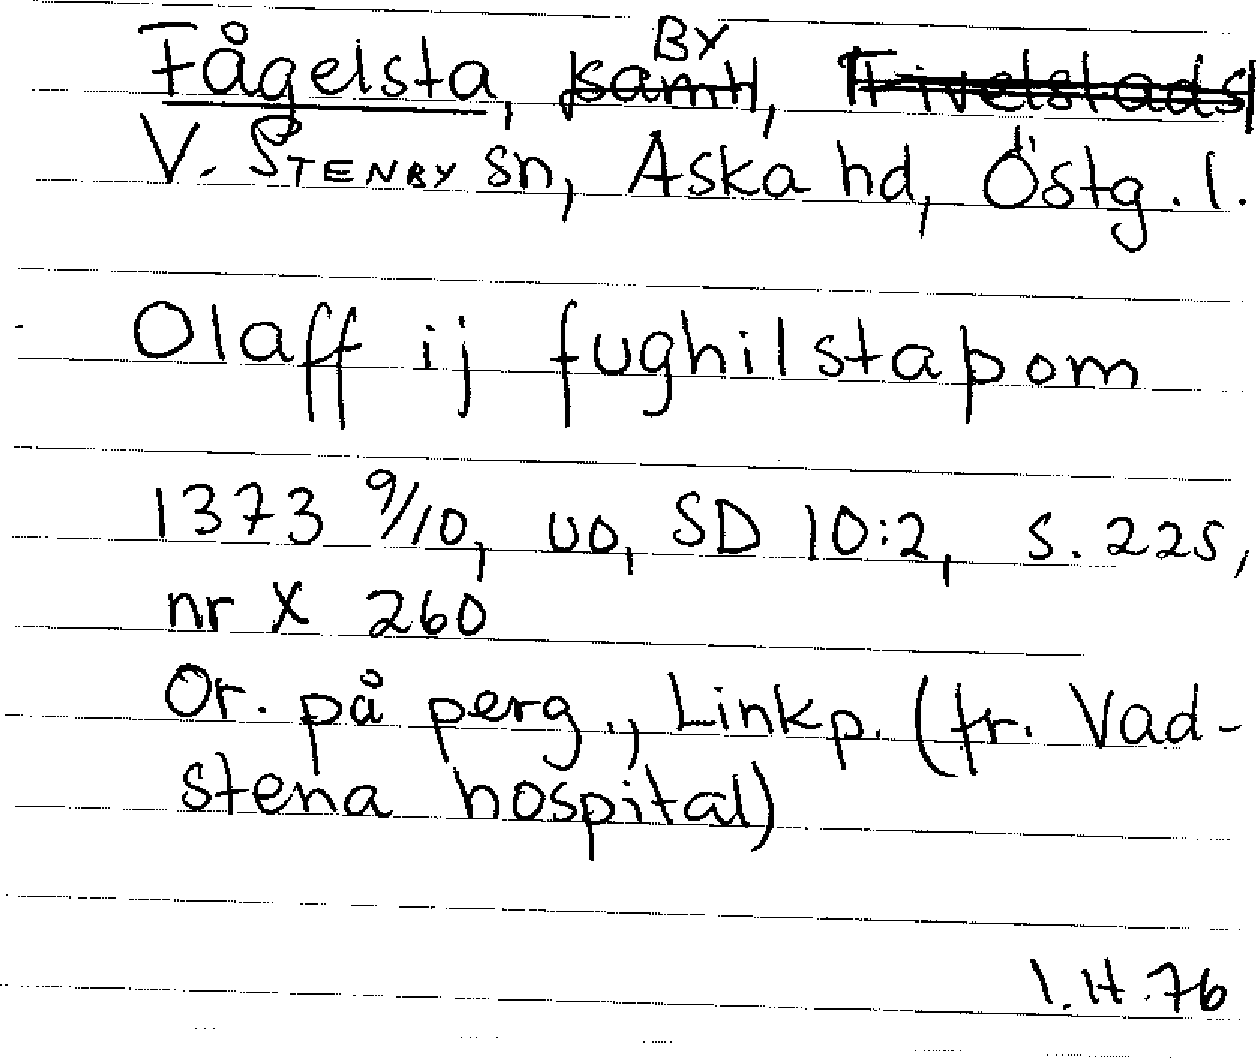 Fågelsta, samh BY, Fivelstads
V. STENBY sn, Aska hd, Östg. l.
Olaff ij fughilstaþom
1373 9/10, uo, SD 10:2, s. 225,
nr X 260
Or. på perg., Linkp. (fr. Vad-
stena hospital)
I.H.76